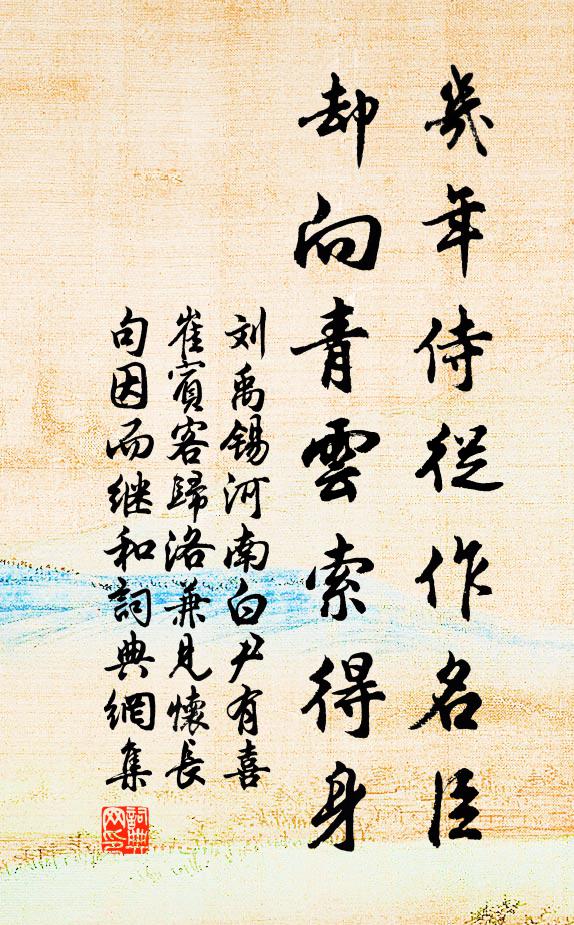 幾年侍從作名臣
却向青雲索得身
刘禹锡河南白尹有喜
崔賓客歸洛兼見懷長
句因而继和詞典網集
詞典
网印